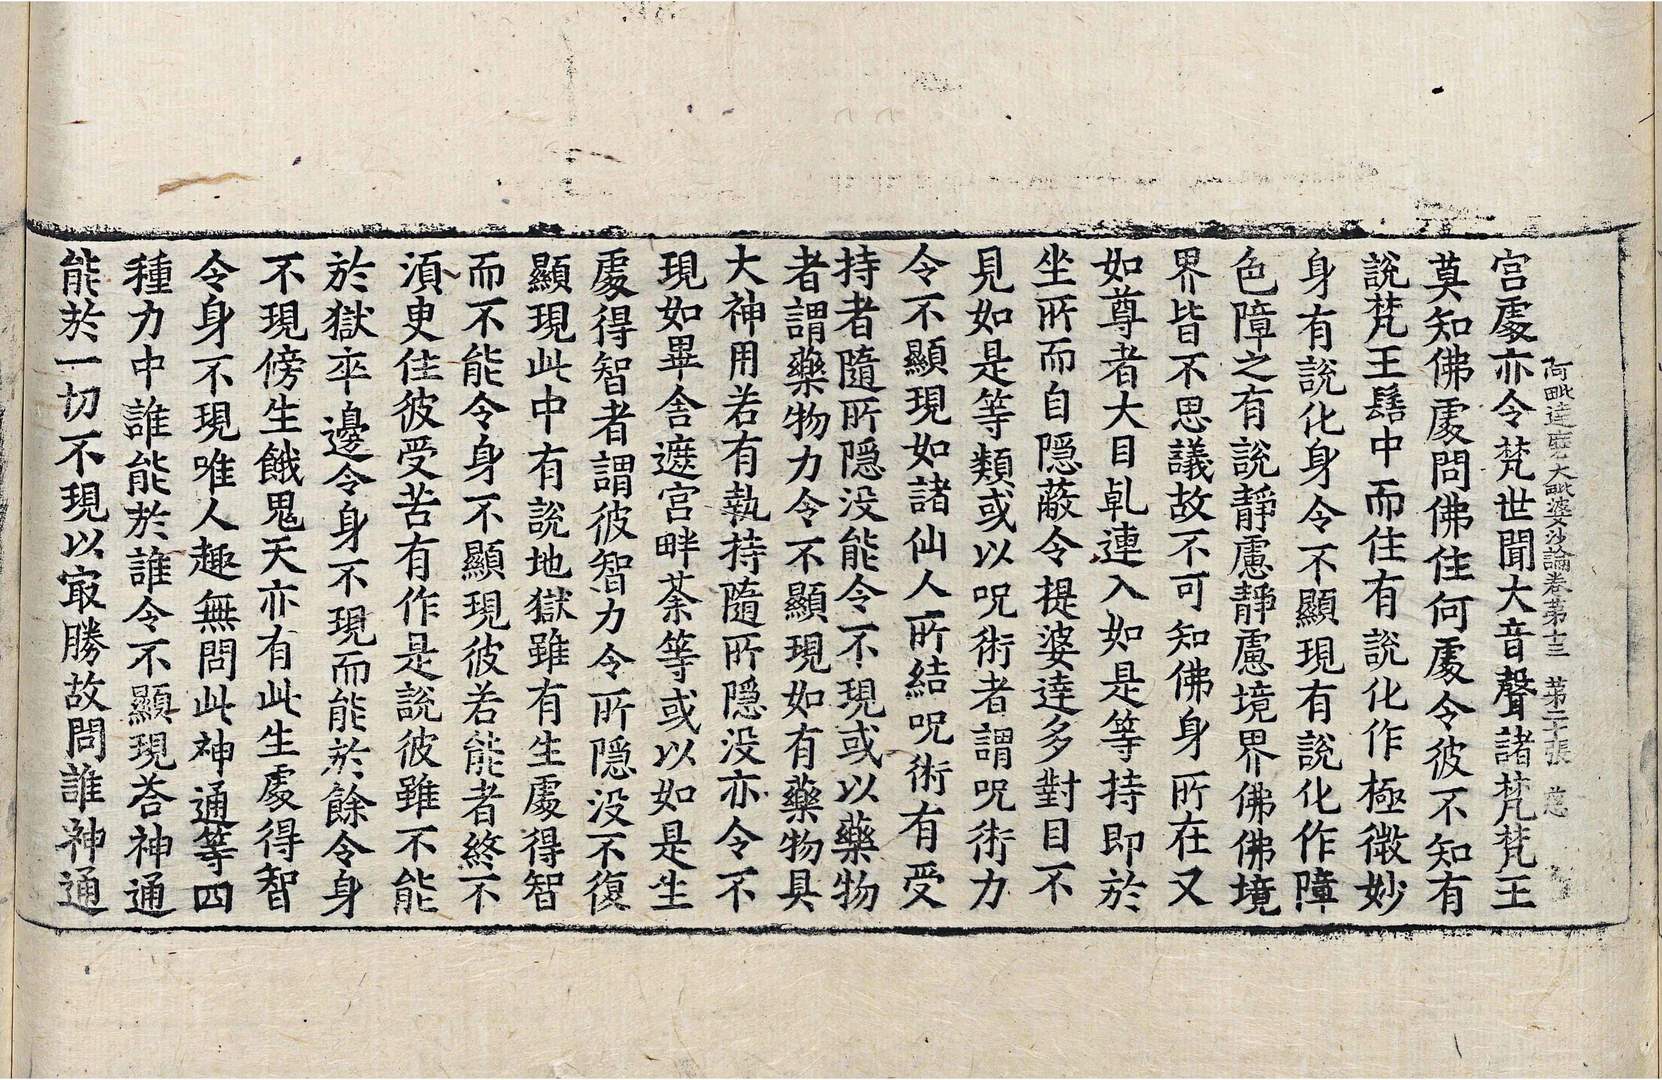 阿毗達磨大毗婆沙論卷第十三　第二十張　慈
宮處亦令梵世聞大音聲諸梵梵王
莫知佛處問佛住何處令彼不知有
說梵王髻中而住有說化作極微妙
身有說化身令不顯現有說化作障
色障之有說靜慮靜慮境界佛佛境
界皆不思議故不可知佛身所在又
如尊者大目乹連入如是等持即於
坐所而自隱蔽令提婆達多對目不
見如是等類或以呪術者謂呪術力
令不顯現如諸仙人所結呪術有受
持者隨所隱没能令不現或以藥物
者謂藥物力令不顯現如有藥物具
大神用若有執持隨所隱没亦令不
現如畢舍遮宮畔茶等或以如是生
處得智者謂彼智力令所隱没不復
顯現此中有說地獄雖有生處得智
而不能令身不顯現彼若能者終不
湏臾住彼受苦有作是說彼雖不能
於獄卒邊令身不現而能於餘令身
不現傍生餓鬼天亦有此生處得智
令身不現唯人趣無問此神通等四
種力中誰能於誰令不顯現荅神通
能於一切不現以㝡勝故問誰神通